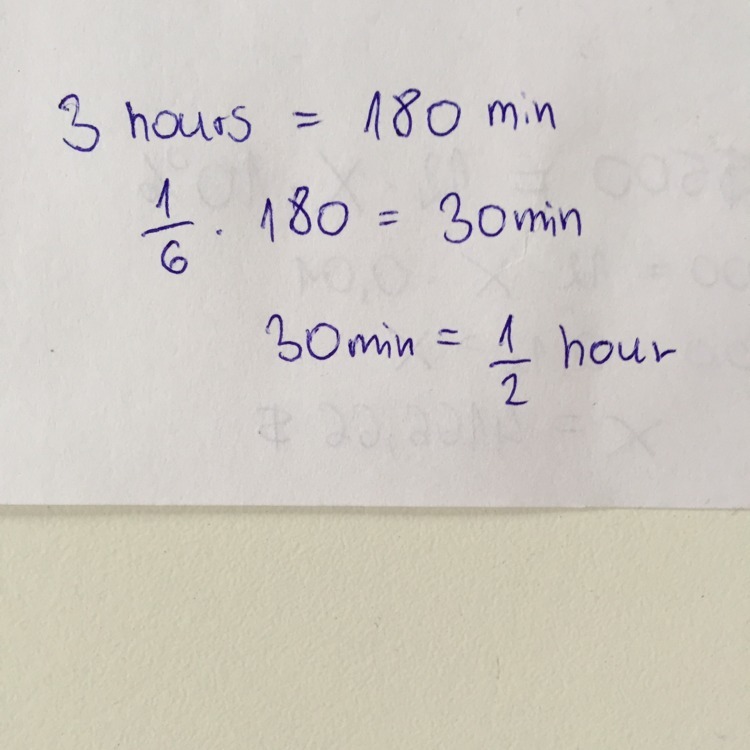 3 hours = 180 min
1/6 · 180 = 30min
30min = 1/2 hour